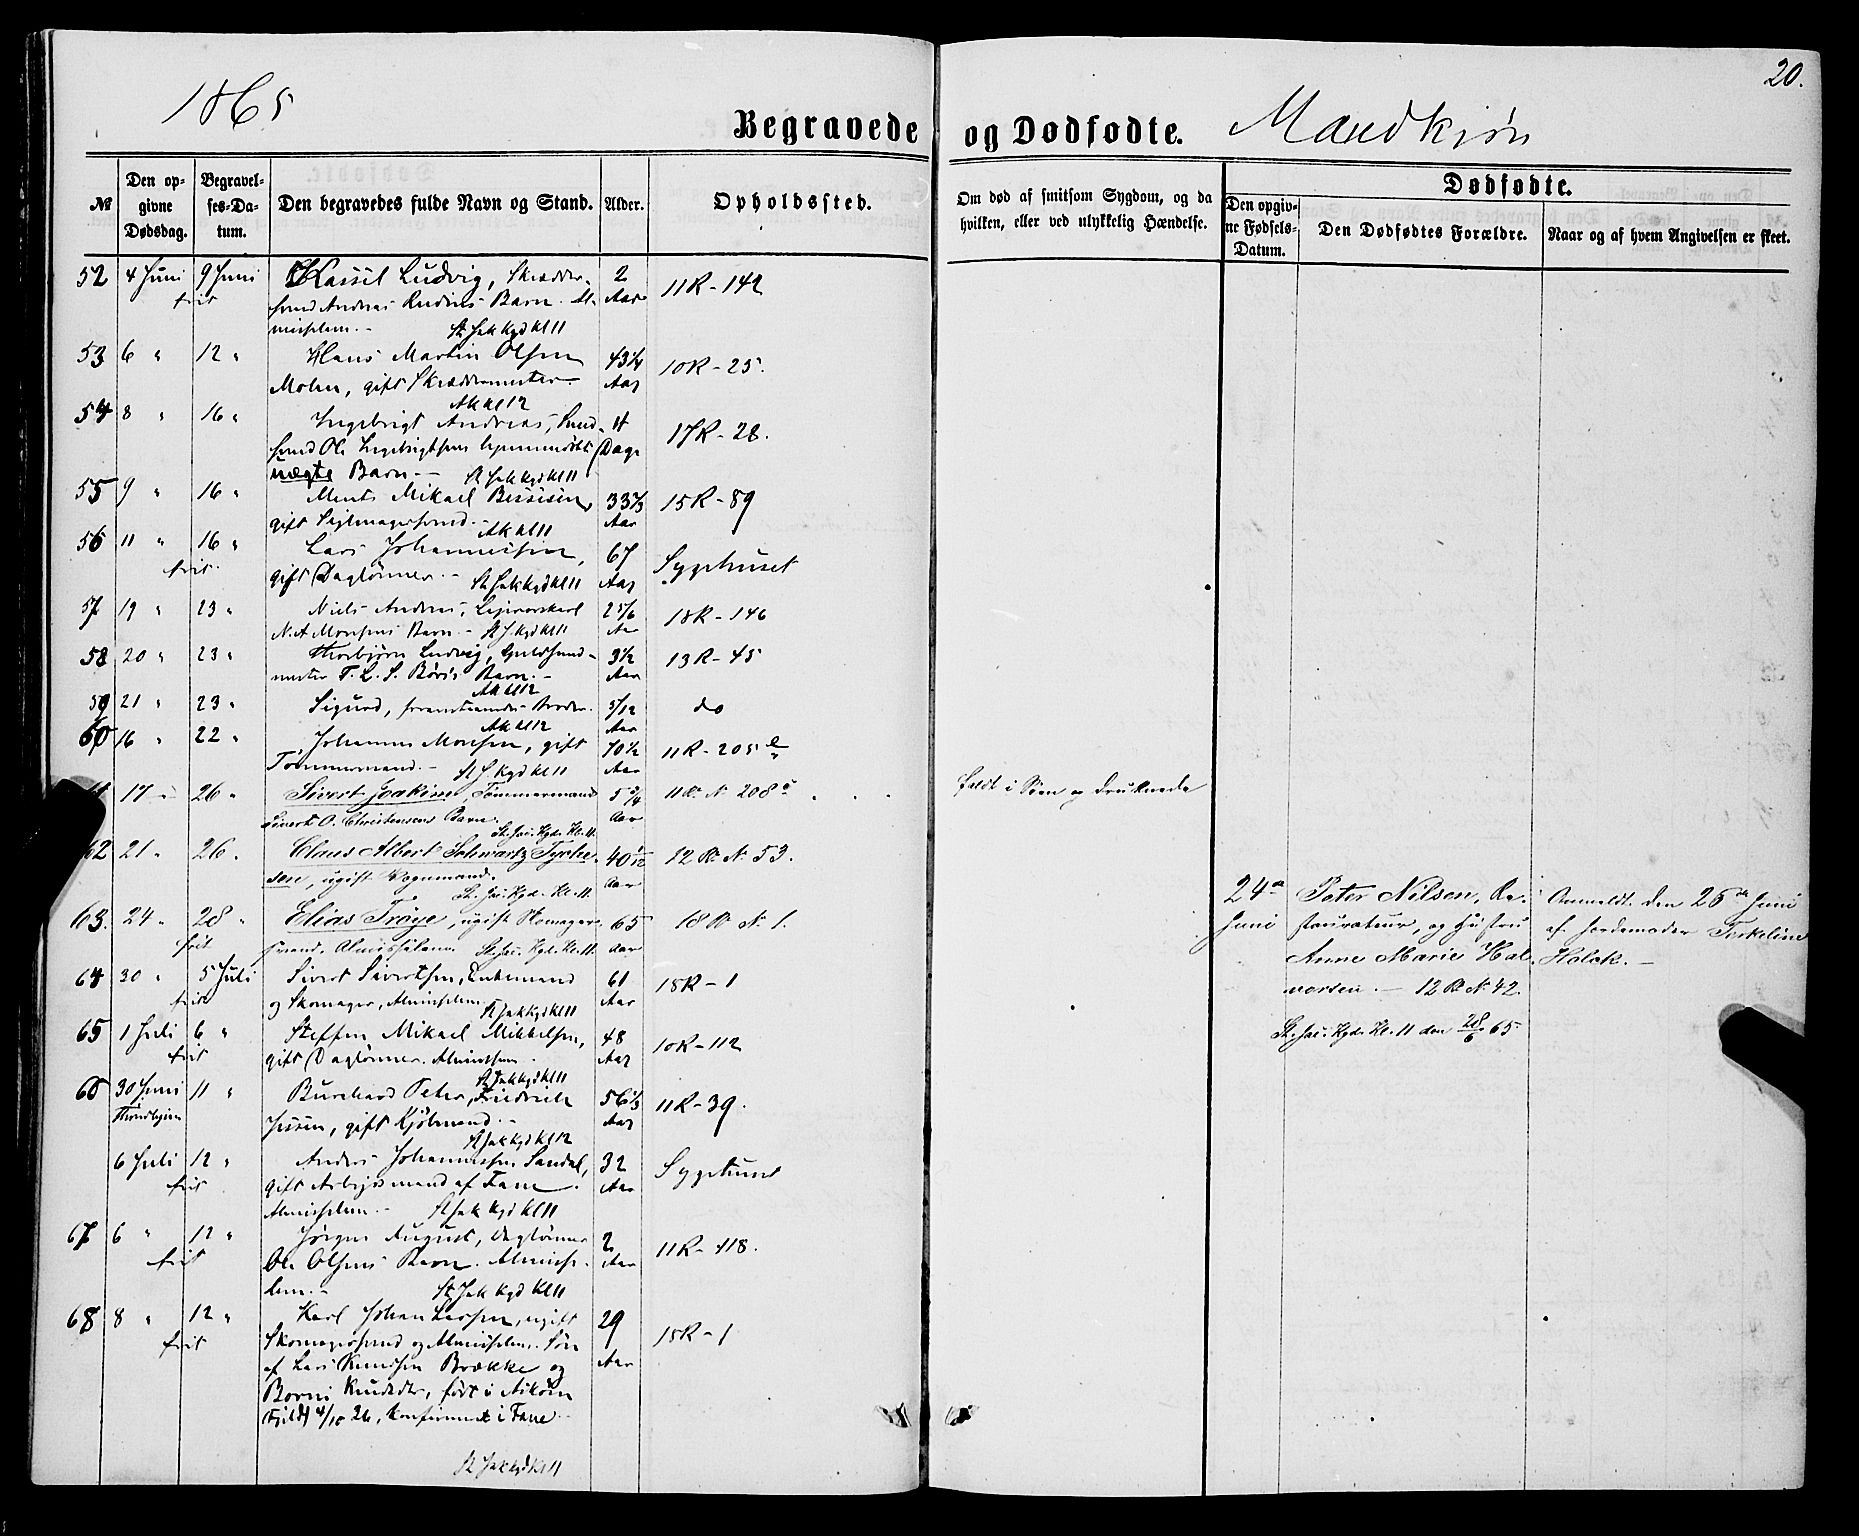 1865
20.
Begravede og Dødfødte. Mandkjøn
№
Den opgivne Dødsdag.
Begravelses-Datum.
Den begravedes fulde Navn og Stand.
Alder.
Opholdssted.
Om død af smitsom Sygdom, og da hvilken, eller ved ulykkelig Hændelse.
Dødfødte.
Den opgivne Fødsels-Datum.
Den Dødfødtes Forældre.
Naar og af hvem Angivelsen er skeet.
52 4 Juni 9 Juni Ludvig, Skrædder- 2 11R-142
frit svend Andreas Barn. Al- Aar
misslem.- St Jak Kgd Kl 11
53 6 " 12 " Hans Martin Olsen 43¼ 10R-25.
Molen, gift Skræddermester- Aar
Ak kl 12
54 8 " 16 " Ingebrigt Andreas, 11 17R-28.
svend Ole Ingebrigtsens Dage
uægte Barn.- St Jak Kgd Kl 11
55 9 " 16 " Ments Mikael 33⅔ 15R-89
gift Sejlmagersvend.- Aar
Ak kl 11
56 11 " 16 " Lars Johannessen, 67 Sygehuset
frit. gift Daglønner.- St Jak Kgd Kl 11 Aar
57 19 " 23 " Niels Andreas, 2 5/6 18R-146
N. A Monsens Barn.- St J. Kgd Kl 11 Aar
58 20 " 23 " Thorbjørn Ludvig, Guldsmed- 3½ 13R-45
mester T. L. S. Børs's Barn.- Aar
Ak kl 12
59 21 " 23 " Sigurd, Broder. 5/12 do
Ak kl 12 Aar
60 16 " 22 " Johannes Monsen, gift 70½ 11R-205
Tømmermand.- St J. Kgd Kl 11 Aar
17 " 26 " Sivert Joakim, Tømmermand 5¾ 11 R. N. 208 faldt i Søen og druknede
Sivert O. Christensens Barn. Aar
St. Jac. Kgd. Kl. 11.
62 21 " 26 " Claus Albert Schwartz 40 1/12 12 R. N. 53.
sen, ugift Vognmand. Aar
St. Jac. Kgd. Kl. 11.
63. 24 " 28 " Elias Trøye, ugift 65 18 R. N. 1.
frit svend, St. Jac. Kgd. Kl. 11. Aar
64 30 " 5 Juli Sivert Sivertsen, Enkemand 61 18R-1
frit og Skomager, Almisslem. Aar
St Jak Kgd Kl 11
65 1 Juli 6 " Steffen Mikael Mikkelsen, 48 10R-112
frit gift Daglønner. Almisslem. Aar
St Jak Kgd Kl 11
66 30 Juni 11 " Burchard Peter Fredrich 56⅓ 11R-39.
Trondhjem Jessen, gift Kjøbmand.- Aar
St Jak Kgd Kl 12
6 Juli 12 " Anders Johannessen Sandal, 32 Sygehuset
frit gift Arbejdsmand af Fane. Aar
Almisslem.- St Jak Kgd Kl 11
67 6 " 12 " Jørgen August, Daglønner 2 11R-118.
frit Ole Olsens Barn. Almiss- Aar
lem.- St Jak Kgd Kl 11
68 8 " 12 " Karl Johan Larsen, ugift 29 18R-1
frit Skomagersvend og Almisslem. Søn Aar
af Lars Knudsen Brække og
Knudsdtr, født i Askøen
4/10 36, konfirmeret i Fane.-
St Jak Kgd Kl 11
24de Juni
Peter Nilsen, Re-
staurateur, og Hustru
Anne Marie Hal-
vorsen.- 12 R. N. 42.
St. Jac. Kgd. Kl. 11 den 28/6 65
Anmeldt den 26de Juni
af Jordemoder Torkeline
Holck.-